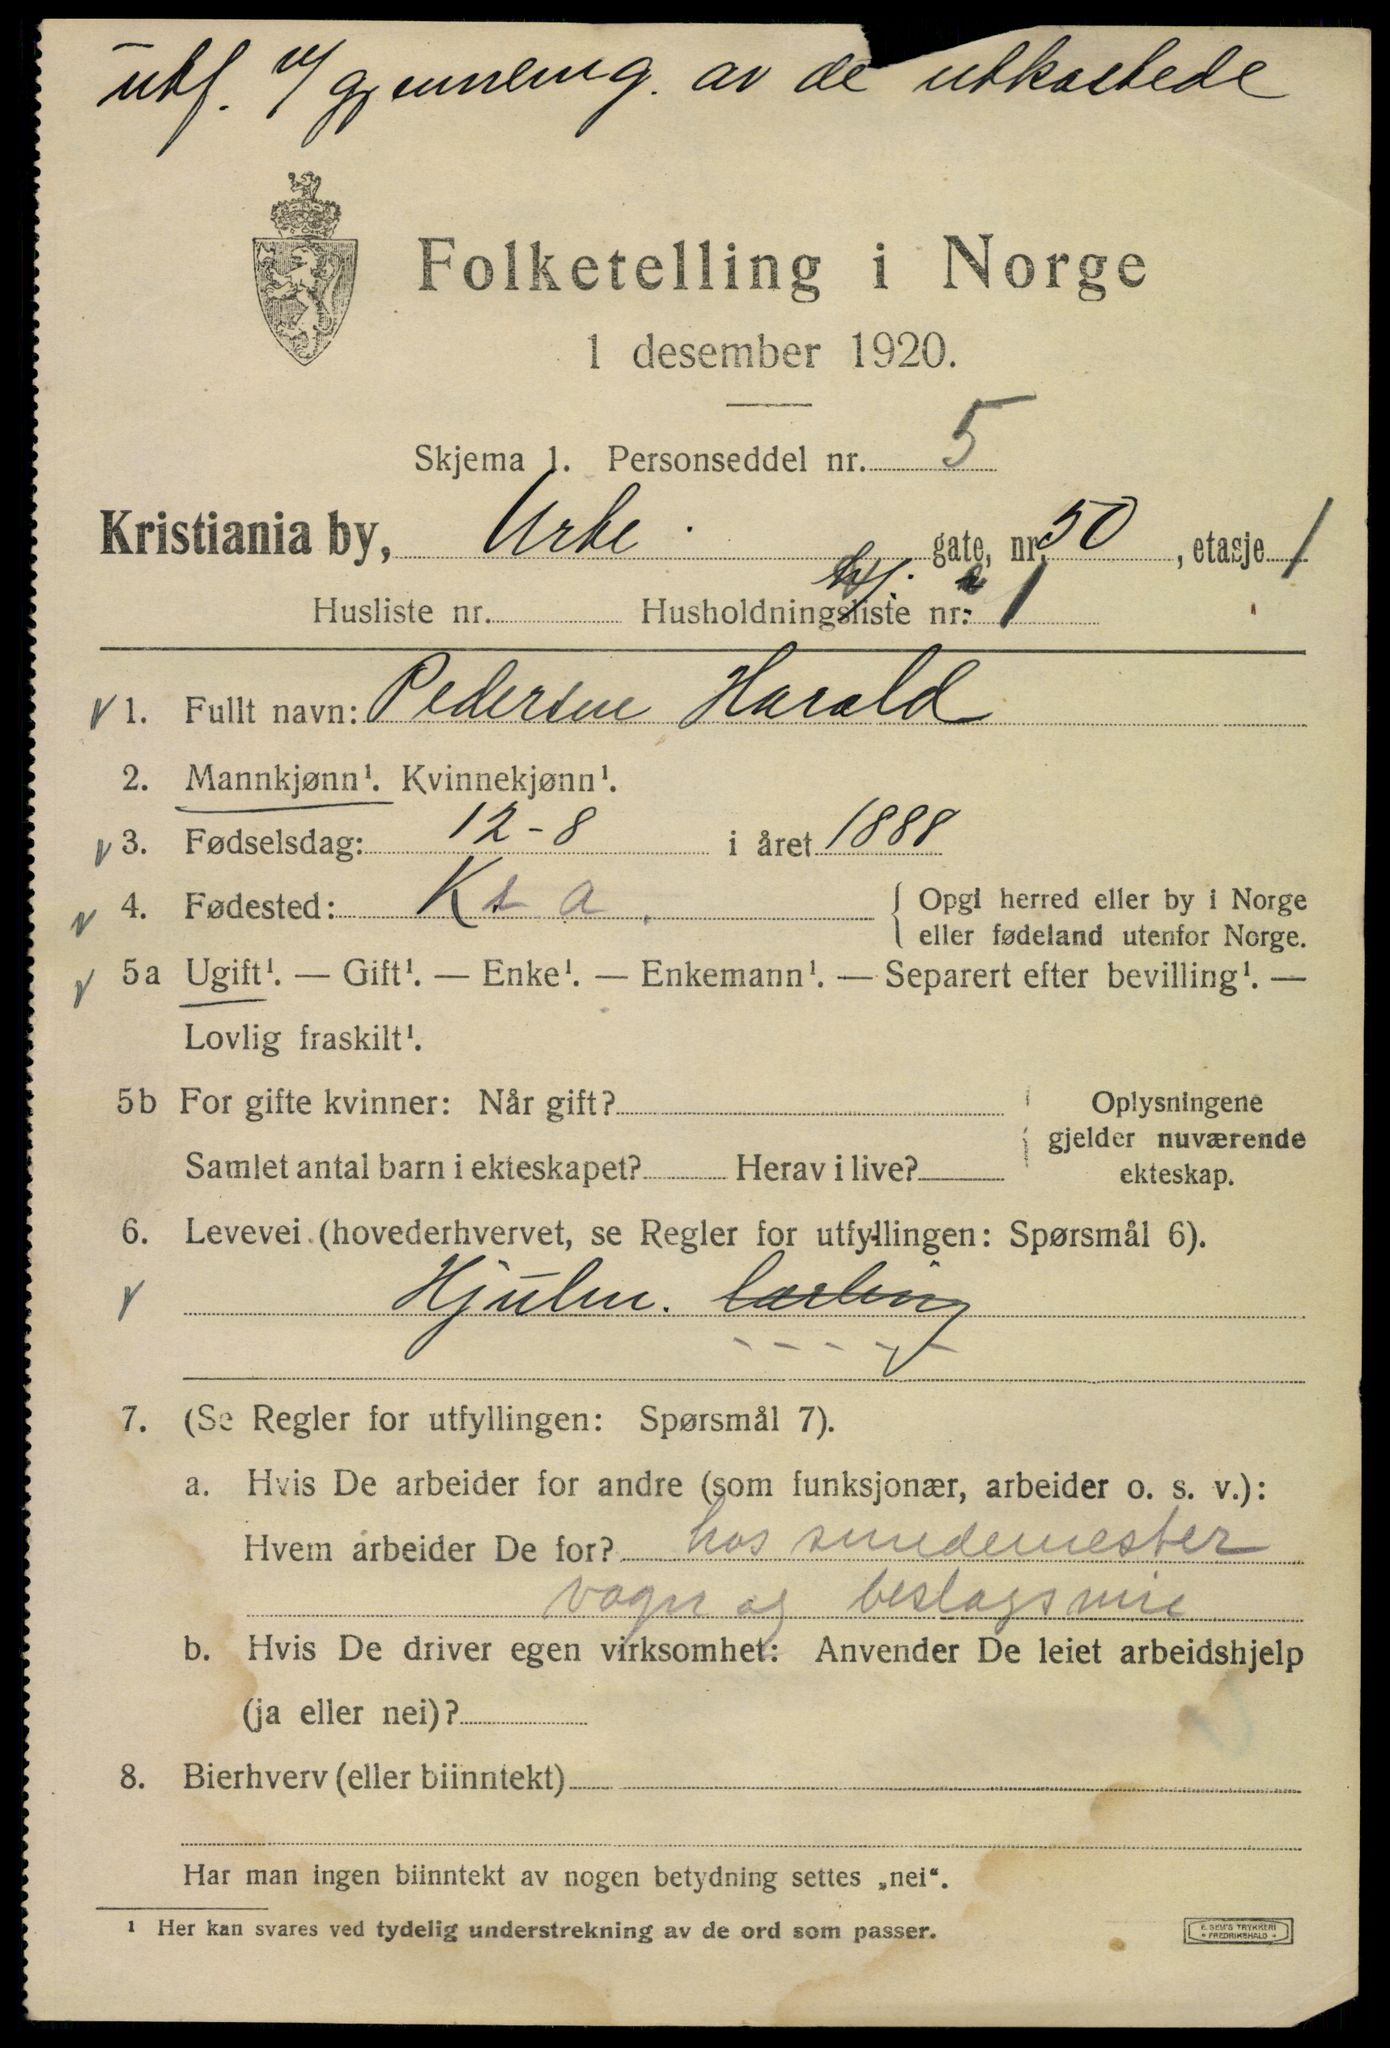 utf. v/ gjennemg. av de utkastede
Folketelling i Norge
1 desember 1920.
Skjema 1. Personseddel nr. 5
Kristiania by, Urte gate, nr. 50, etasje 1
Husliste nr. Husholdningsliste nr. 1
1. Fullt navn: Pedersen Harald
2. Mannkjønn¹. Kvinnekjønn¹.
3. Fødselsdag: 12-8 i året 1888
4. Fødested: Kra. { Opgi herred eller by i Norge
eller fødeland utenfor Norge.
5a Ugift¹. — Gift¹. — Enke¹. — Enkemann¹. — Separert efter bevilling¹. —
Lovlig fraskilt¹.
5b For gifte kvinner: Når gift?
Samlet antal barn i ekteskapet? Herav i live?
Oplysningene
gjelder nuværende
ekteskap.
6. Levevei (hovederhvervet, se Regler for utfyllingen: Spørsmål 6).
Hjulm. lærling
7. (Se Regler for utfyllingen: Spørsmål 7).
a. Hvis De arbeider for andre (som funksjonær, arbeider o. s. v.):
Hvem arbeider De for? hos smedemester
vogn og beslagsmie
b. Hvis De driver egen virksomhet: Anvender De leiet arbeidshjelp
(ja eller nei)?
8. Bierhverv (eller biinntekt)
Har man ingen biinntekt av nogen betydning settes „nei“.
¹ Her kan svares ved tydelig understrekning av de ord som passer.
E. SEM'S TRYKKERI
• FREDRIKSHALD •